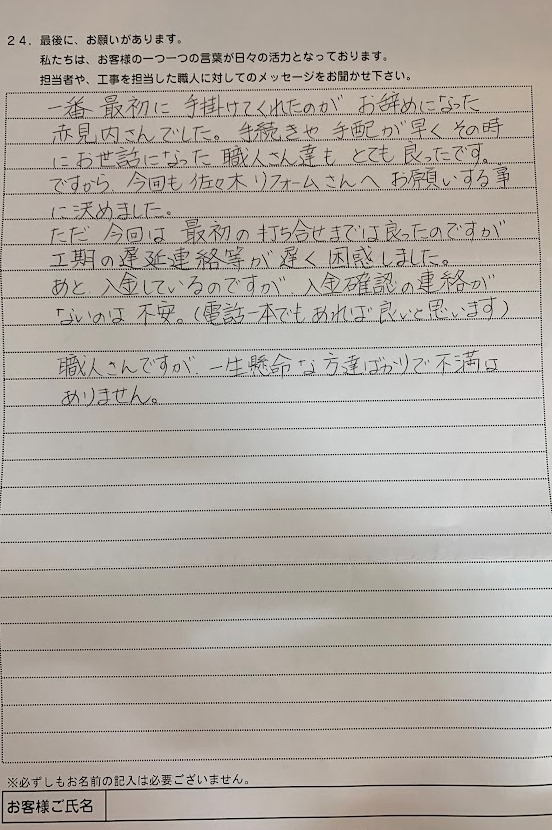 24．最後に、お願いがあります。
私たちは、お客様の一つ一つの言葉が日々の活力となっております。
担当者や、工事を担当した職人に対してのメッセージをお聞かせ下さい。
一番 最初に 手掛けてくれたのが お辞めになった
赤見内さんでした。手続きや 手配が早く その時
にお世話になった 職人さん達も とても 良ったです。
ですから、今回も 佐々木リフォームさんへ お願いする事
に決めました。
ただ 今回は 最初の打ち合せまでは良ったのですが
工期の遅延連絡等が遅く 困惑しました。
あと、入金しているのですが、入金確認の連絡が
ないのは 不安。（電話一本でもあれば良いと思います）
職人さんですが、一生懸命な方達ばかりで不満は
ありません。
※必ずしもお名前の記入は必要ございません。
お客様ご氏名